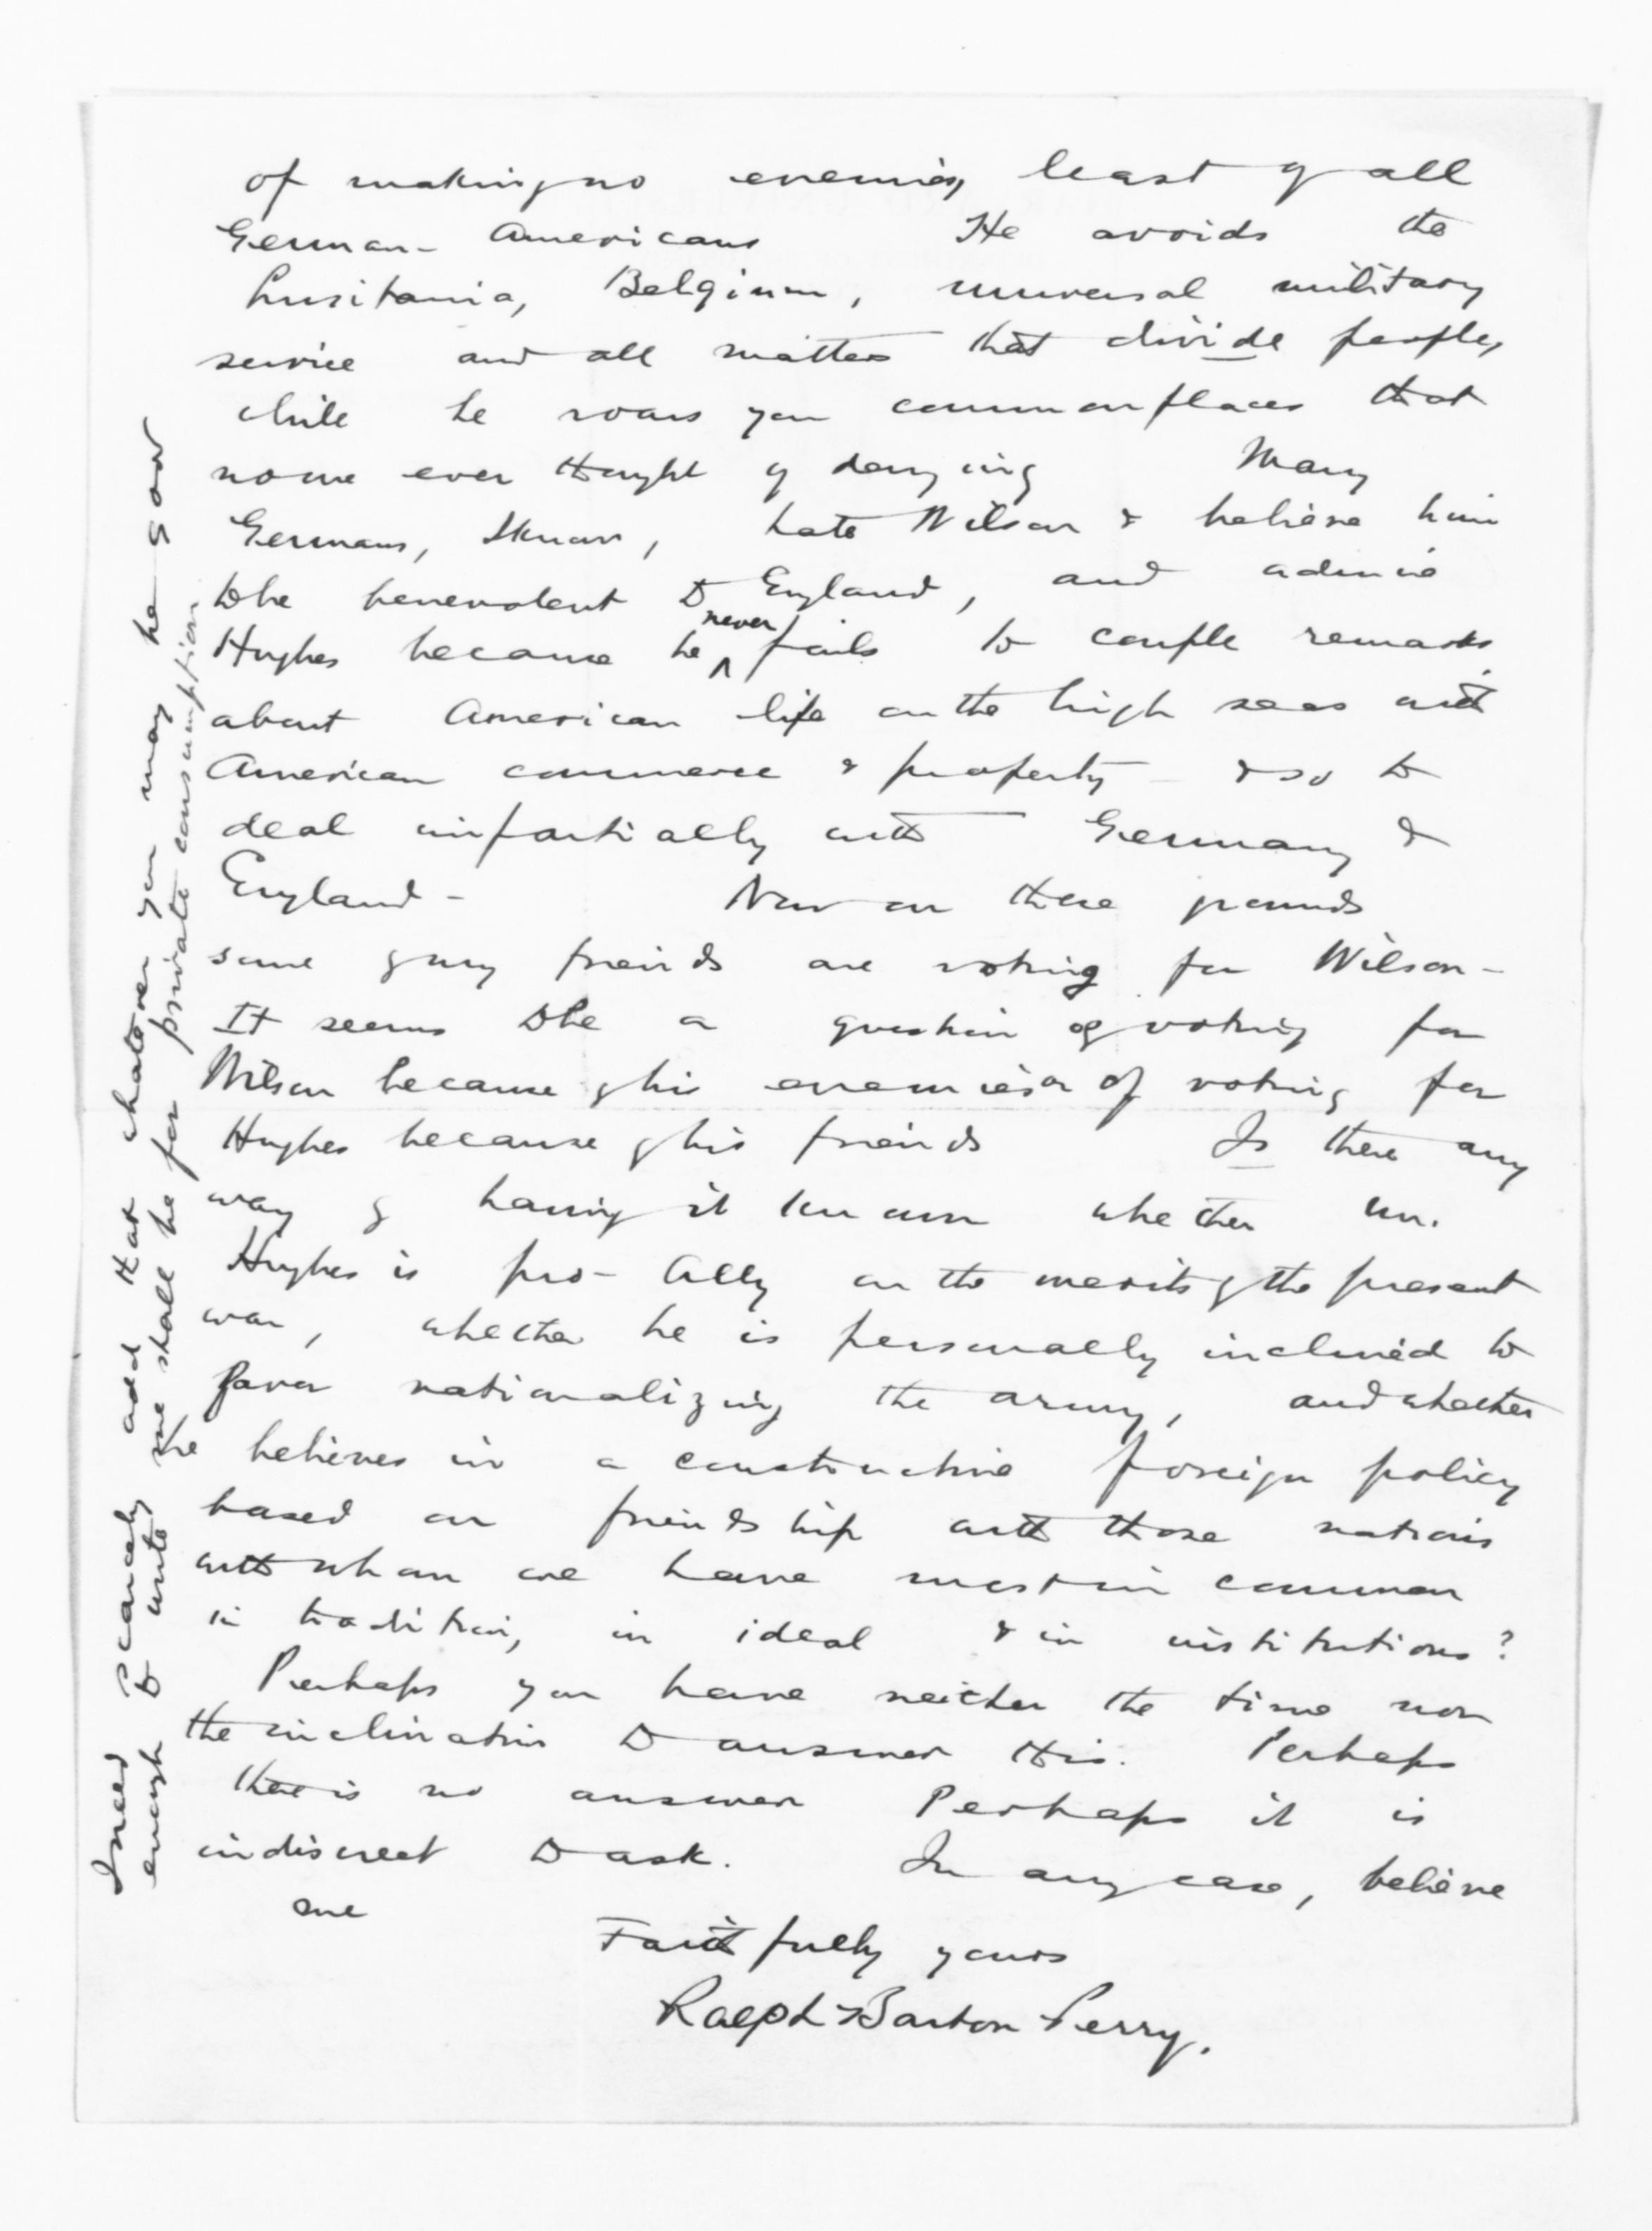 of making no enemies, least of all
German-Americans He avoids the
Lusitania, Belgium, universal military
service and all matters that divide people,
while he roars you commonplaces that
no one ever thought of denying Many
Germans, I know, hate Wilson & believe him
to be benevolent to England, and admire
Hughes because he never fails to couple remarks
about American life on the high seas with
American commerce & property – & so to
deal impartially with Germany &
England – Now on these grounds
some of my friends are voting for Wilson –
It seems to be a question of voting for
Wilson because of his enemies or of voting for
Hughes because of his friends Is there any
way of having it known whether Mr.
Hughes is pro-Ally on the merits of the present
war, whether he is personally inclined to
favor nationalizing the army, and whether
he believes in a constructive foreign policy
based on friendship with those nations
with whom we have most in common
in tradition, in ideal & in institutions?
Perhaps you have neither the time nor
the inclination to answer this. Perhaps
there is no answer Perhaps it is
indiscreet to ask. In any case, believe
me
Faithfully yours
Ralph Barton Perry.
I need scarcely add that whatever you may be good
enough to write me shall be for private consumption